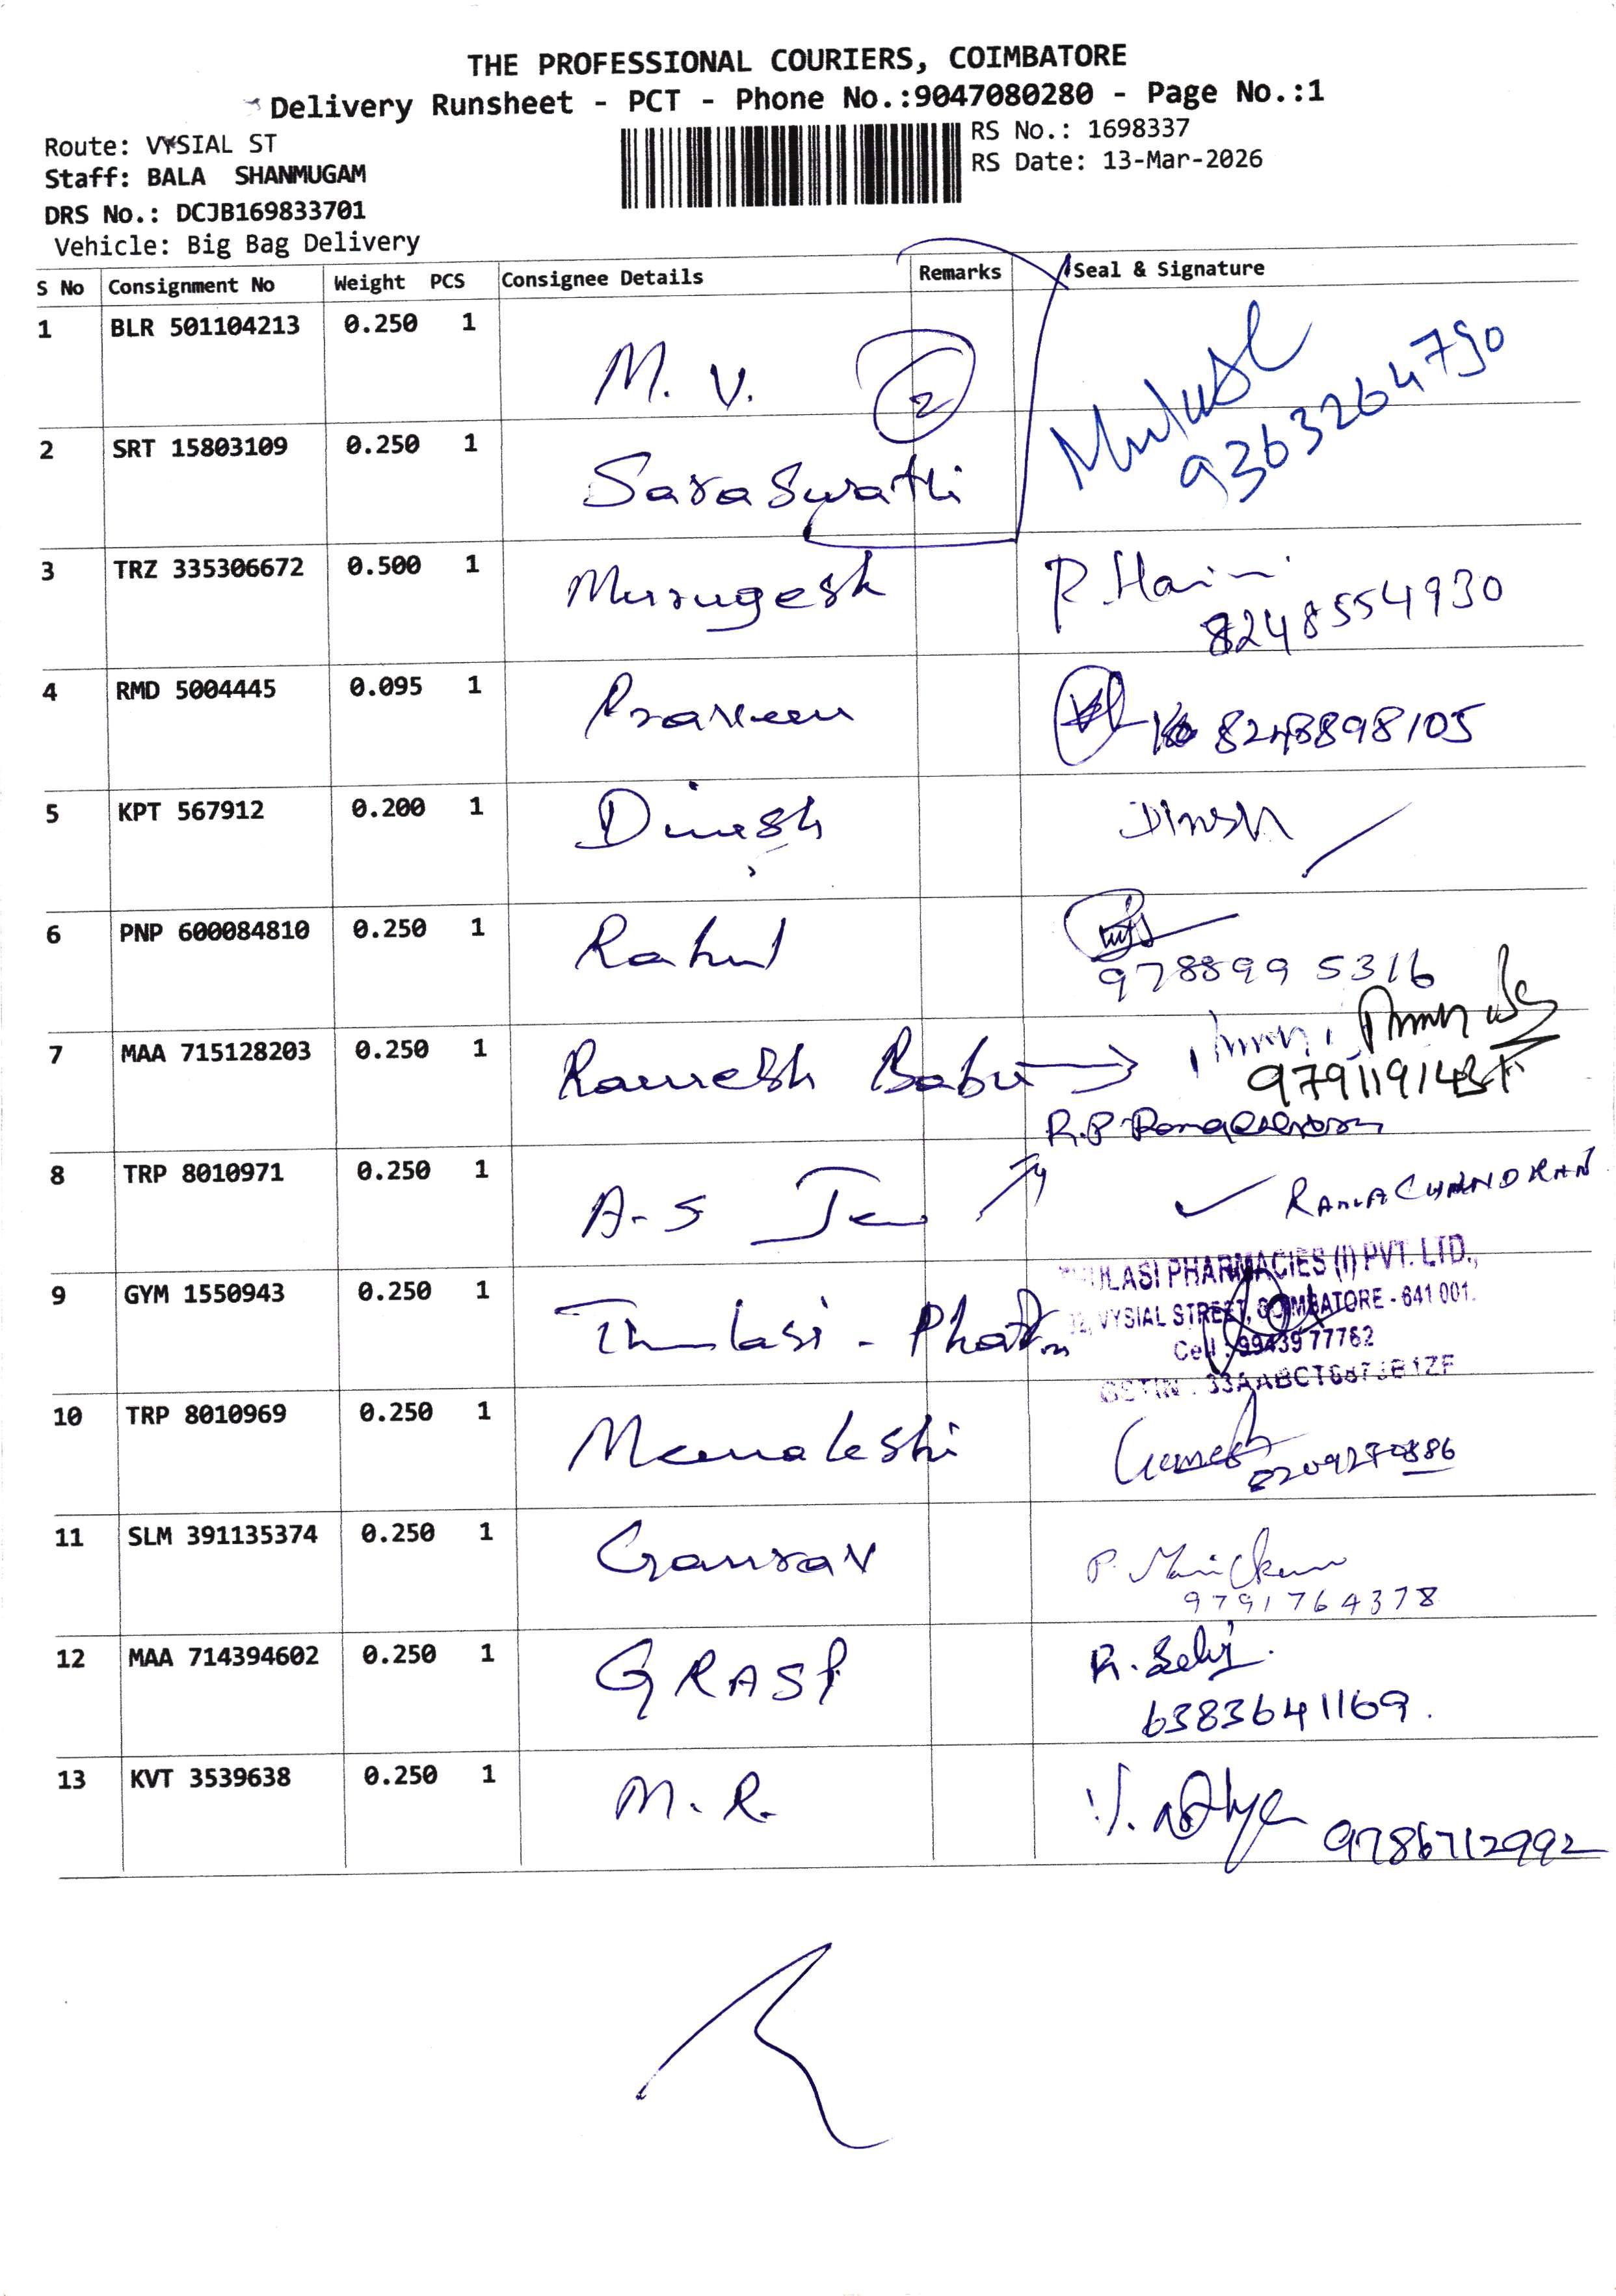 THE PROFESSIONAL COURIERS, COIMBATORE
Delivery Runsheet - PCT - Phone No.:9047080280 - Page No.:1
Route: VYSIAL ST
Staff: BALA SHANMUGAM
DRS No.: DCJB169833701
Vehicle: Big Bag Delivery
RS No.: 1698337
RS Date: 13-Mar-2026
S No Consignment No Weight PCS Consignee Details Remarks Seal & Signature
1 BLR 501104213 0.250 1 M. V. 2
9363264790
2 SRT 15803109 0.250 1 Saraswathi
3 TRZ 335306672 0.500 1 Murugesh
8248554930
4 RMD 5004445 0.095 1 Praveen 8248898105
5 KPT 567912 0.200 1 Dinesh Dinesh
6 PNP 600084810 0.250 1 Rahul
978899 5316
7 MAA 715128203 0.250 1 Ramesh Babu
8 TRP 8010971 0.250 1 A-S RAMACHANDRAN
9 GYM 1550943 0.250 1 Thulasi -
THULASI PHARMACIES (I) PVT. LTD.,
VYSIAL STREET, COIMBATORE - 641 001.
Cell : 99439 77762
GSTIN
10 TRP 8010969 0.250 1 Meenakshi
11 SLM 391135374 0.250 1 Gaurav P. Manickam
9791764378
12 MAA 714394602 0.250 1 GRASP R. Selvi.
6383641169.
13 KVT 3539638 0.250 1 M. R.
9786712992